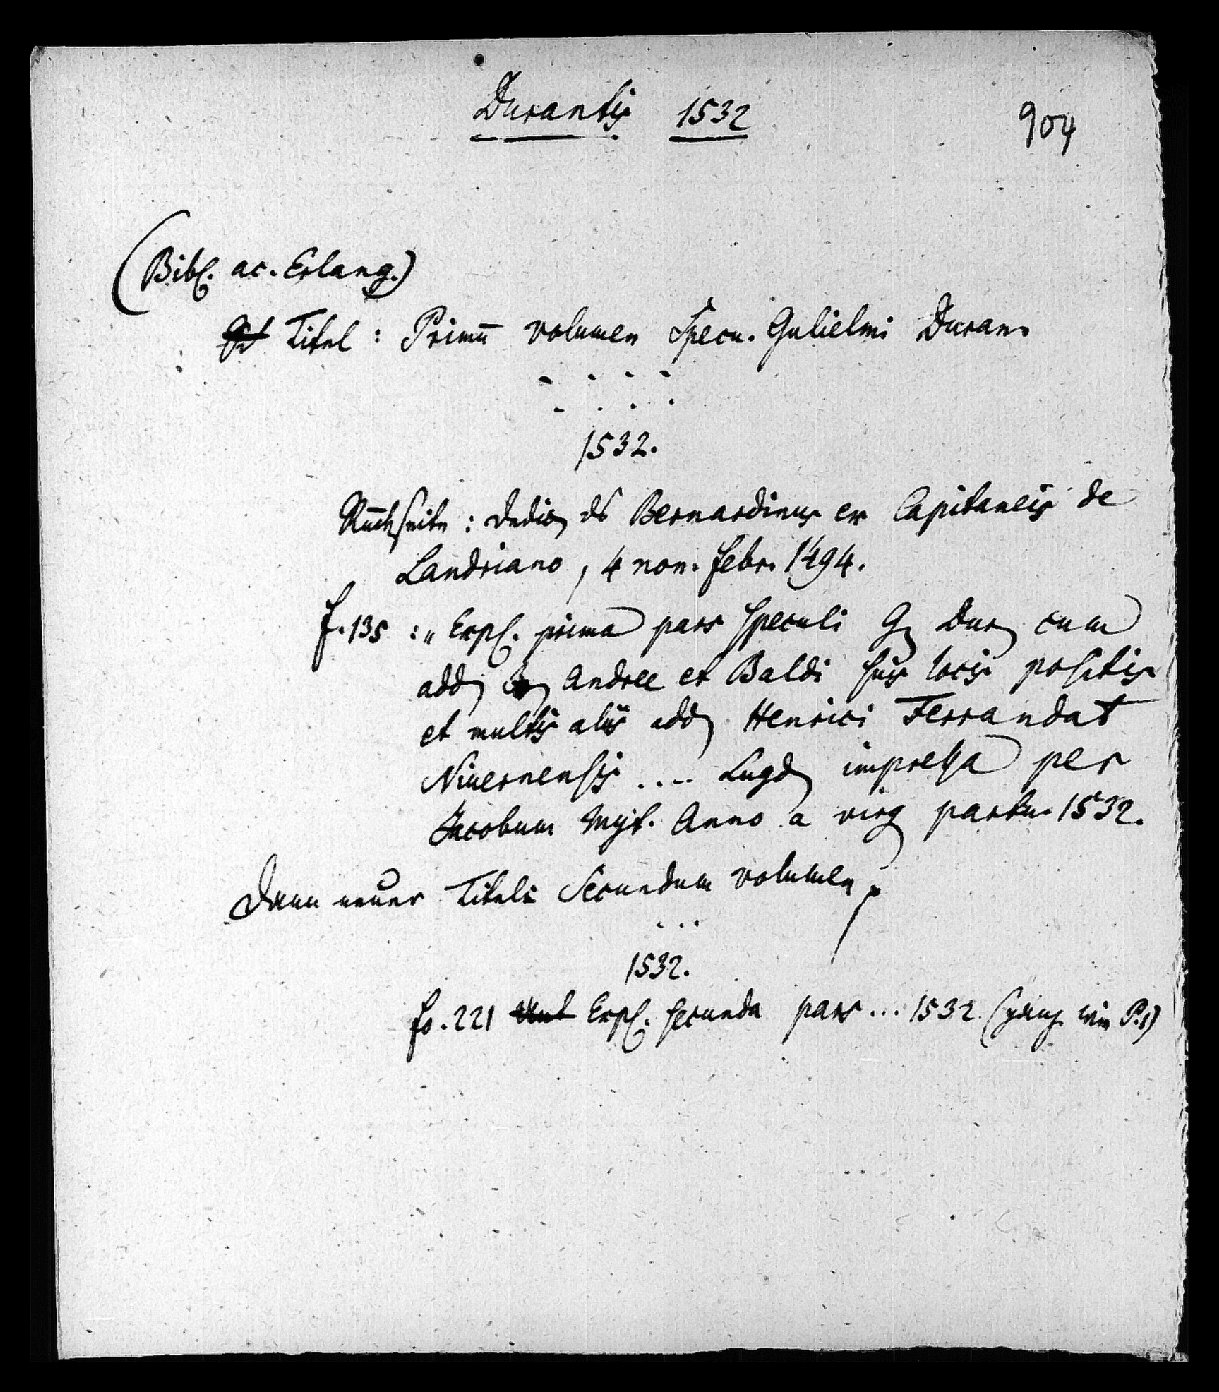 Durantis 1532
904
(Bibl. ac. Erlang.)
Titel: Primū volumen Specu. Gulielmi Duran.
. . . .
. . . .
1532.
Rückseite: Dedic. ds Bernardinus ex Capitaneis de
Landriano, 4 non. febr. 1494.
f. 135 : „Expl. prima pars speculi G. Dur. cum
add. Jo. Andree et Baldi suis locis positis
et multis aliis add. Henrici Ferrandat
Nivernensis .... Lugd. impressa per
Jacobum Myt. Anno a virg. partu. 1532.
Dann neuer Titel: Secundum volumen
...
1532.
fo. 221 Expl. secunda pars ... 1532. (ganz wie P. 1)